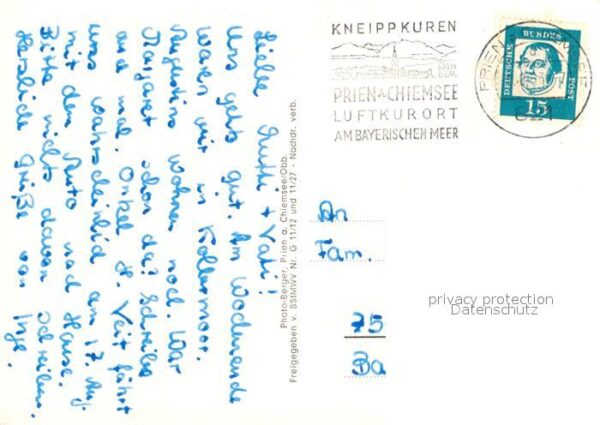 Liebe Mutti + Vati!
Uns gehts gut. Am Wochenende
waren wir in Kolbermoor.
Augustins wohnen noch. War
Margaret schon da? Schreibe
auch mal. Onkel H. Veit fährt
uns wahrscheinlich am 17. Aug.
mit dem Auto nach Hause.
Bitte nichts davon schreiben.
Herzliche Grüße von Inge.
Photo-Berger, Prien a. Chiemsee/Obb.
Freigegeben v. BStMWV Nr. G 11/12 und 11/27 - Nachdr. verb.
KNEIPPKUREN
PRIEN A. CHIEMSEE
LUFTKURORT
AM BAYERISCHEN MEER
PRIEN
DEUTSCHE BUNDESPOST
15
An
Fam.
75
Ba
privacy protection
Datenschutz